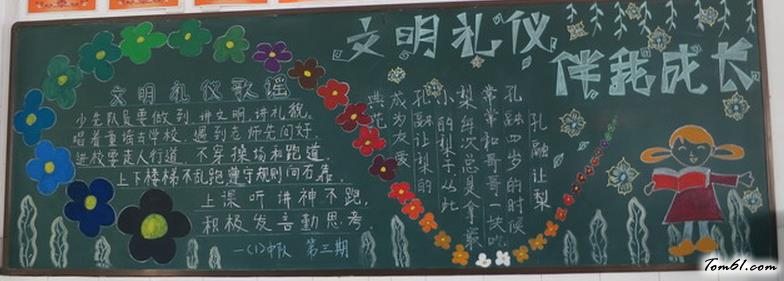 文明礼仪
伴我成长
文明礼仪歌谣
少先队员要做到 讲文明,讲礼貌。
唱着童谣去学校,遇到老师先问好,
进校要走人行道,不穿操场和跑道
上下楼梯不乱跑遵守规则向右靠
上课听讲神不跑,
积极发言勤思考.
一(1)中队 第三期
孔融让梨
孔融四岁的时候
常常和哥哥一块吃
梨每次总是拿最
小的梨子从此
孔融让梨的
成为友爱
典范
Tom61.com